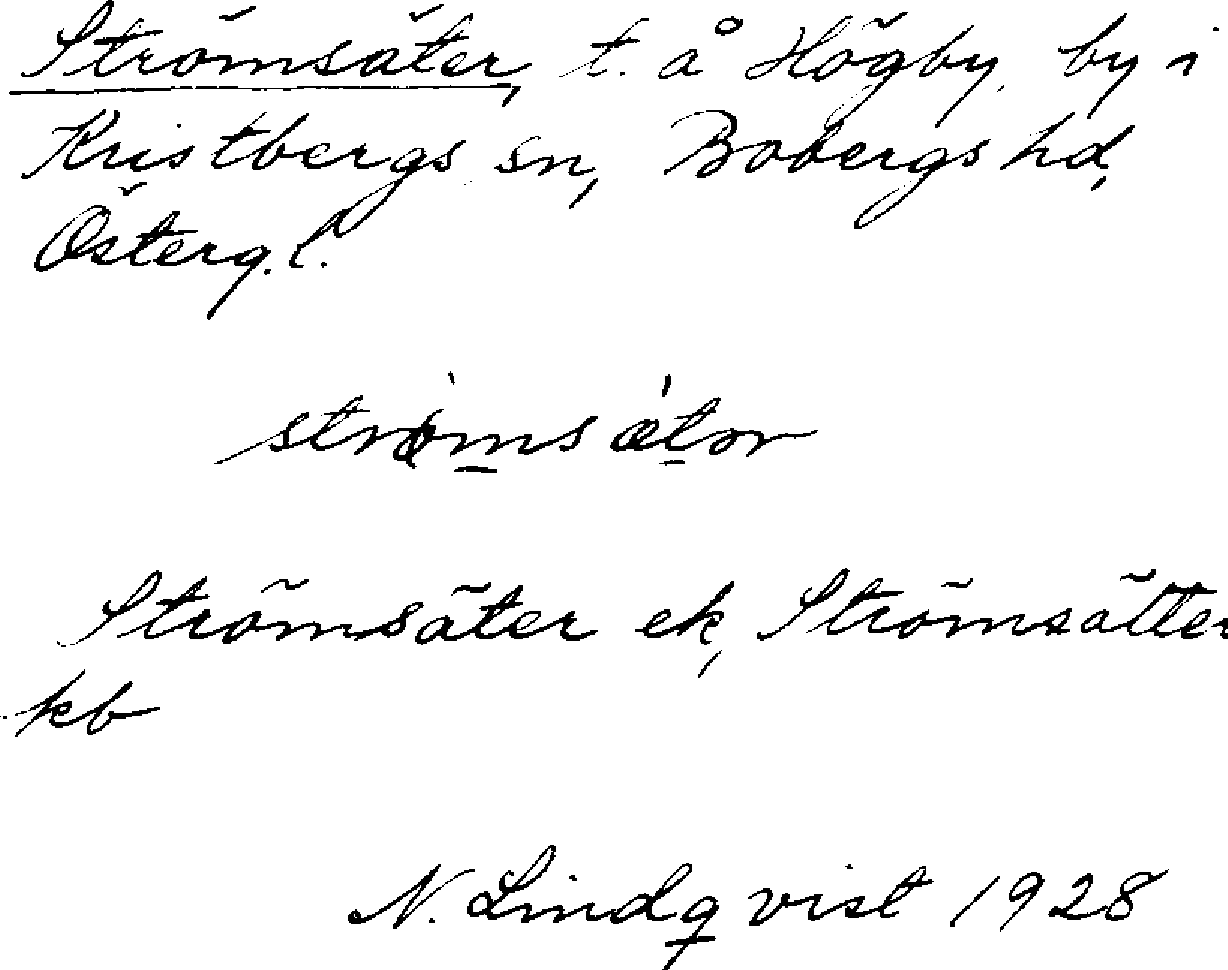 Strömsäter, t. å Högby, by i
Kristbergs sn, Bobergs hd,
Österg. l.
Strömsäter ek, Strömsätter
kb
N. Lindqvist 1928